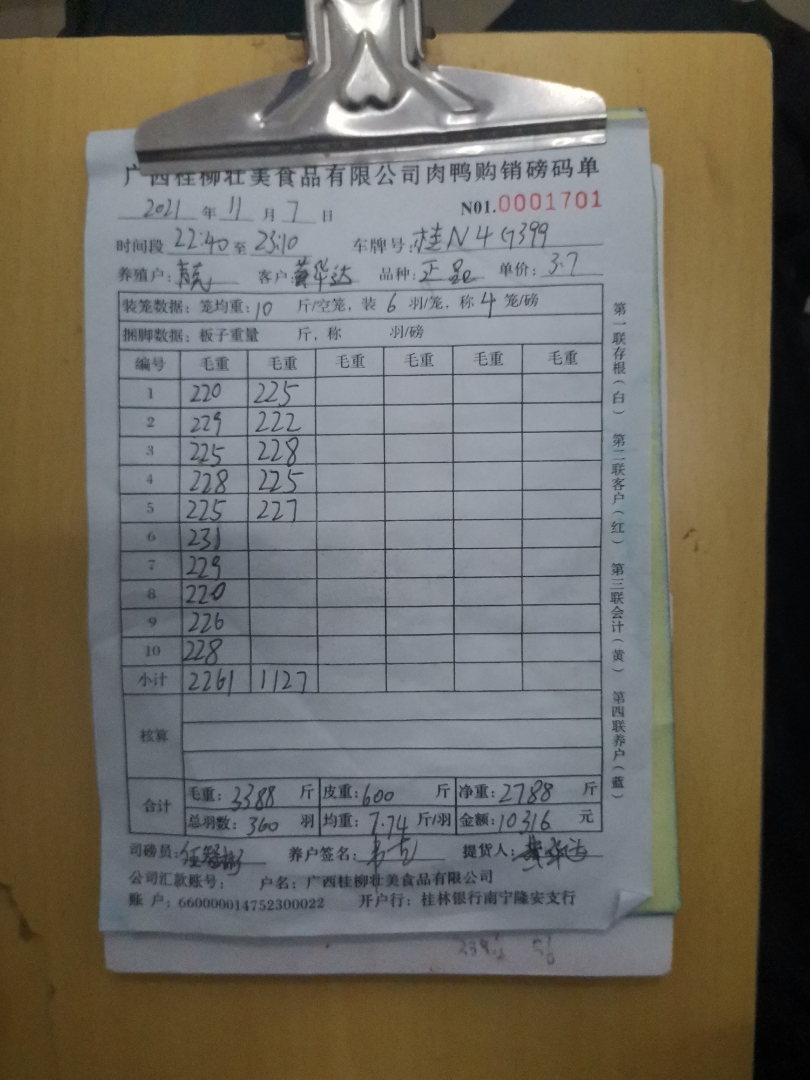 广西桂柳壮美食品有限公司肉鸭购销磅码单
2021 年 11 月 7 日 N01.0001701
时间段 22:40 至 23:10 车牌号: 桂N4G399
养殖户: 客户: 黄华达 品种: 正品 单价: 3.7
装笼数据: 笼均重: 10 斤/空笼, 装 6 羽/笼, 称 4 笼/磅
捆脚数据: 板子重量 斤, 称 羽/磅
编号 毛重 毛重 毛重 毛重 毛重 毛重
1 220 225
2 229 222
3 225 228
4 228 225
5 225 227
6 231
7 229
8 220
9 226
10 228
小计 2261 1127
核算
合计 毛重: 3388 斤 皮重: 600 斤 净重: 2788 斤
总羽数: 360 羽 均重: 7.74 斤/羽 金额: 10316 元
司磅员: 养户签名: 提货人: 黄华达
公司汇款账号: 户名: 广西桂柳壮美食品有限公司
账 户: 660000014752300022 开户行: 桂林银行南宁隆安支行
第一联存根(白) 第二联客户(红) 第三联会计(黄) 第四联养户(蓝)